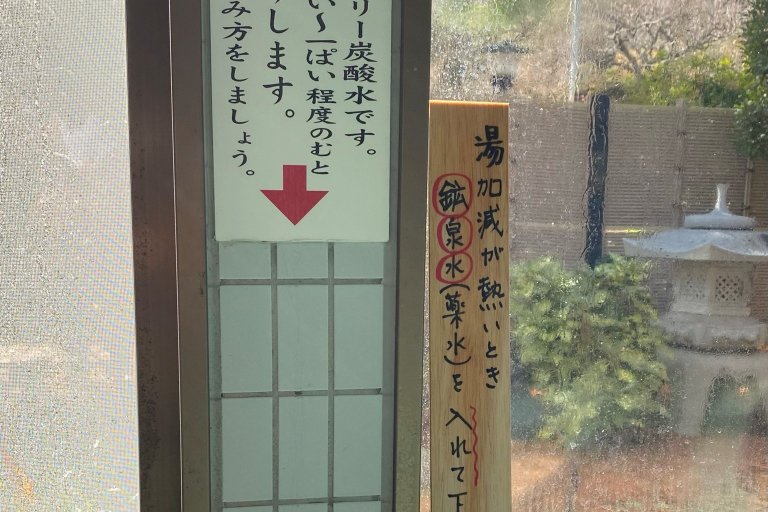 リー炭酸水です。
い〜一ぱい程度のむと
します。
み方をしましょう。
湯加減が熱いとき
鉱泉水(薬水)を入れて下